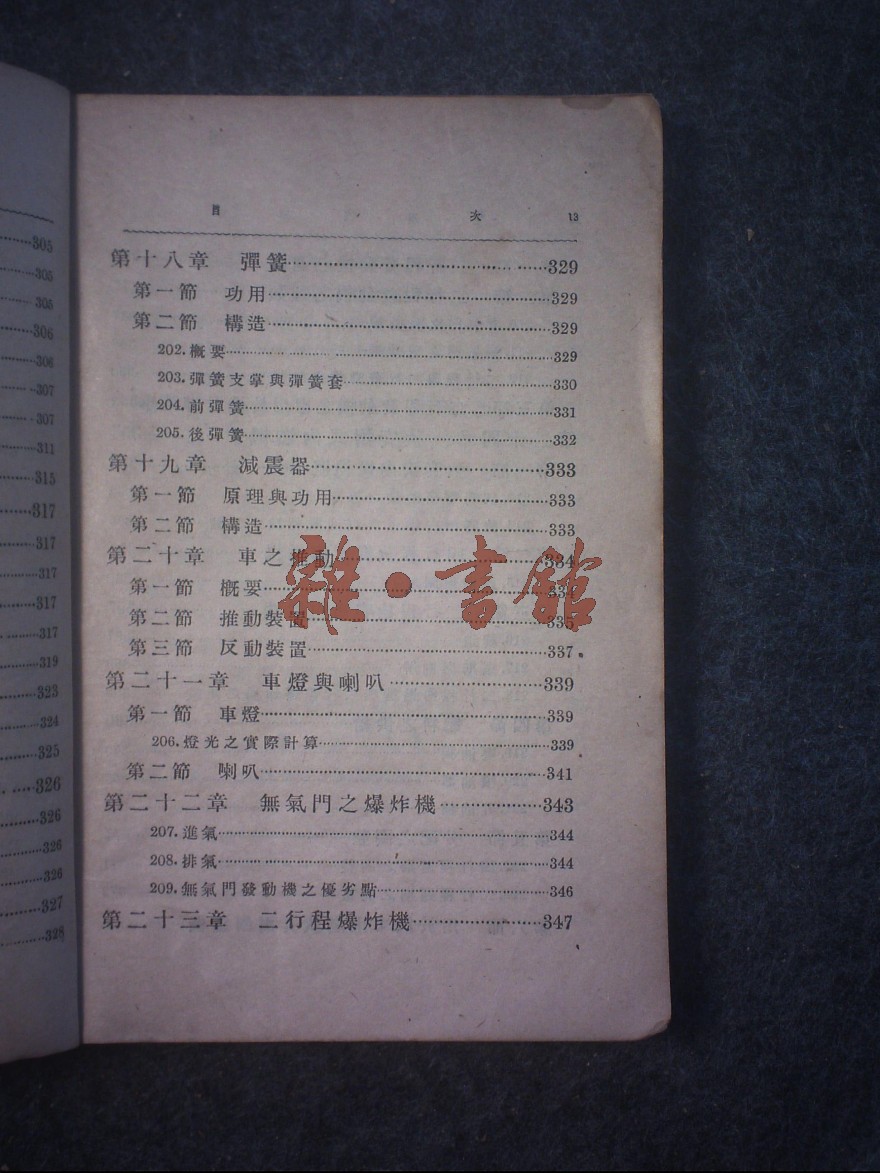 目 次 13
第十八章 彈簧 329
第一節 功用 329
第二節 構造 329
202.概要 329
203.彈簧支掌與彈簧套 330
204.前彈簧 331
205.後彈簧 332
第十九章 減震器 333
第一節 原理與功用 333
第二節 構造 333
第二十章 車之推動 334
第一節 概要 334
第二節 推動裝置 335
第三節 反動裝置 337
第二十一章 車燈與喇叭 339
第一節 車燈 339
206.燈光之實際計算 339
第二節 喇叭 341
第二十二章 無氣門之爆炸機 343
207.進氣 344
208.排氣 344
209.無氣門發動機之優劣點 346
第二十三章 二行程爆炸機 347
雜·書館
305
305
305
306
306
307
307
311
315
317
317
317
317
317
319
323
324
325
326
326
326
326
327
328